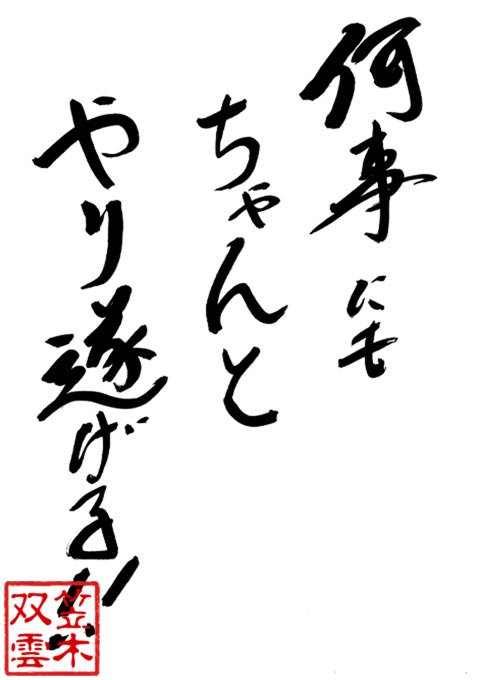 何事にも
ちゃんと
やり遂げる!!
笠木
双雲